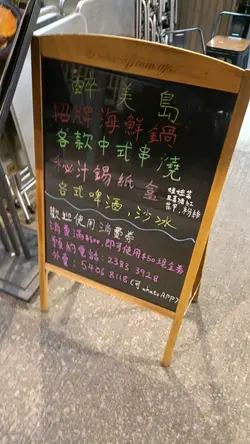 醉美島
招牌海鮮鍋
各款中式串燒
秘汁錫紙盒
台式啤酒,沙冰
歡迎使用消費券
消費滿$500,即可使用$50現金券
預約電話:2383 3928
外賣:5406 8118(可whatsAPP)